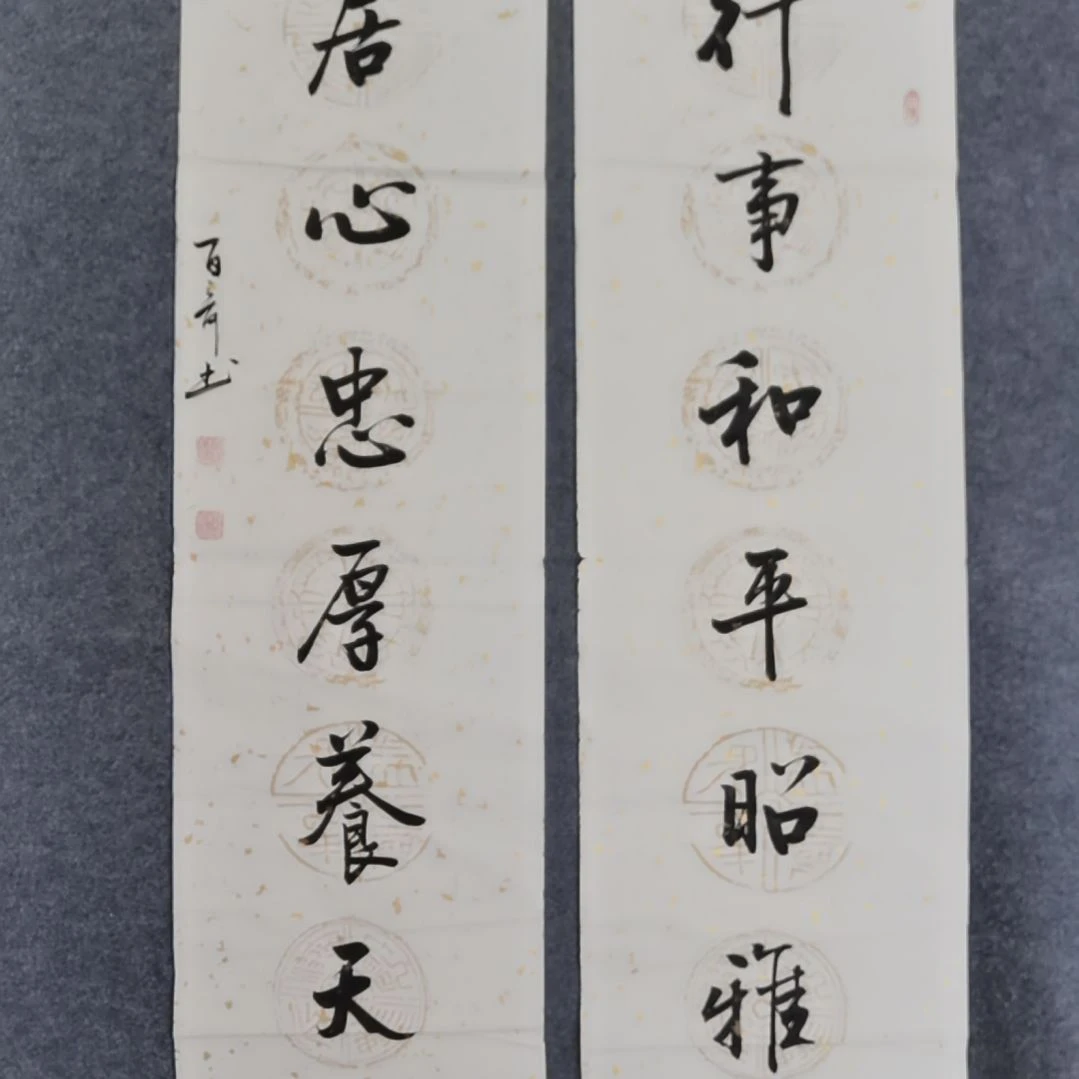 行事和平昭雅
居心忠厚養天